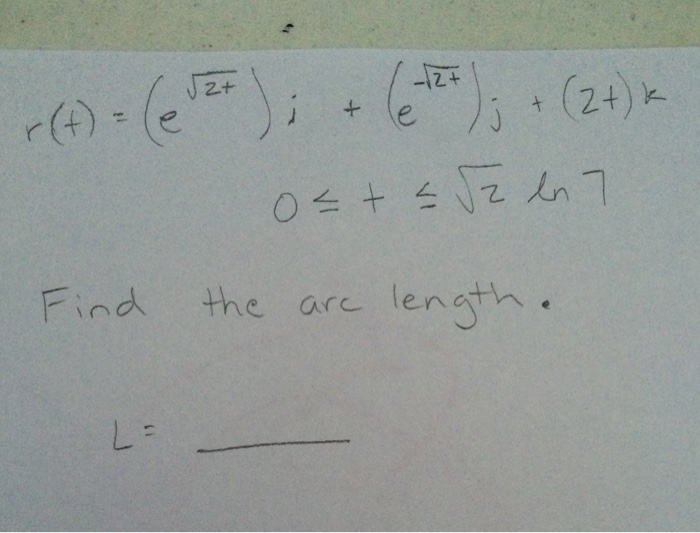 r(t) = (e^√2t) i + (e^-√2t) j + (2t) k
0 ≤ t ≤ √2 ln 7
Find the arc length.
L = ______